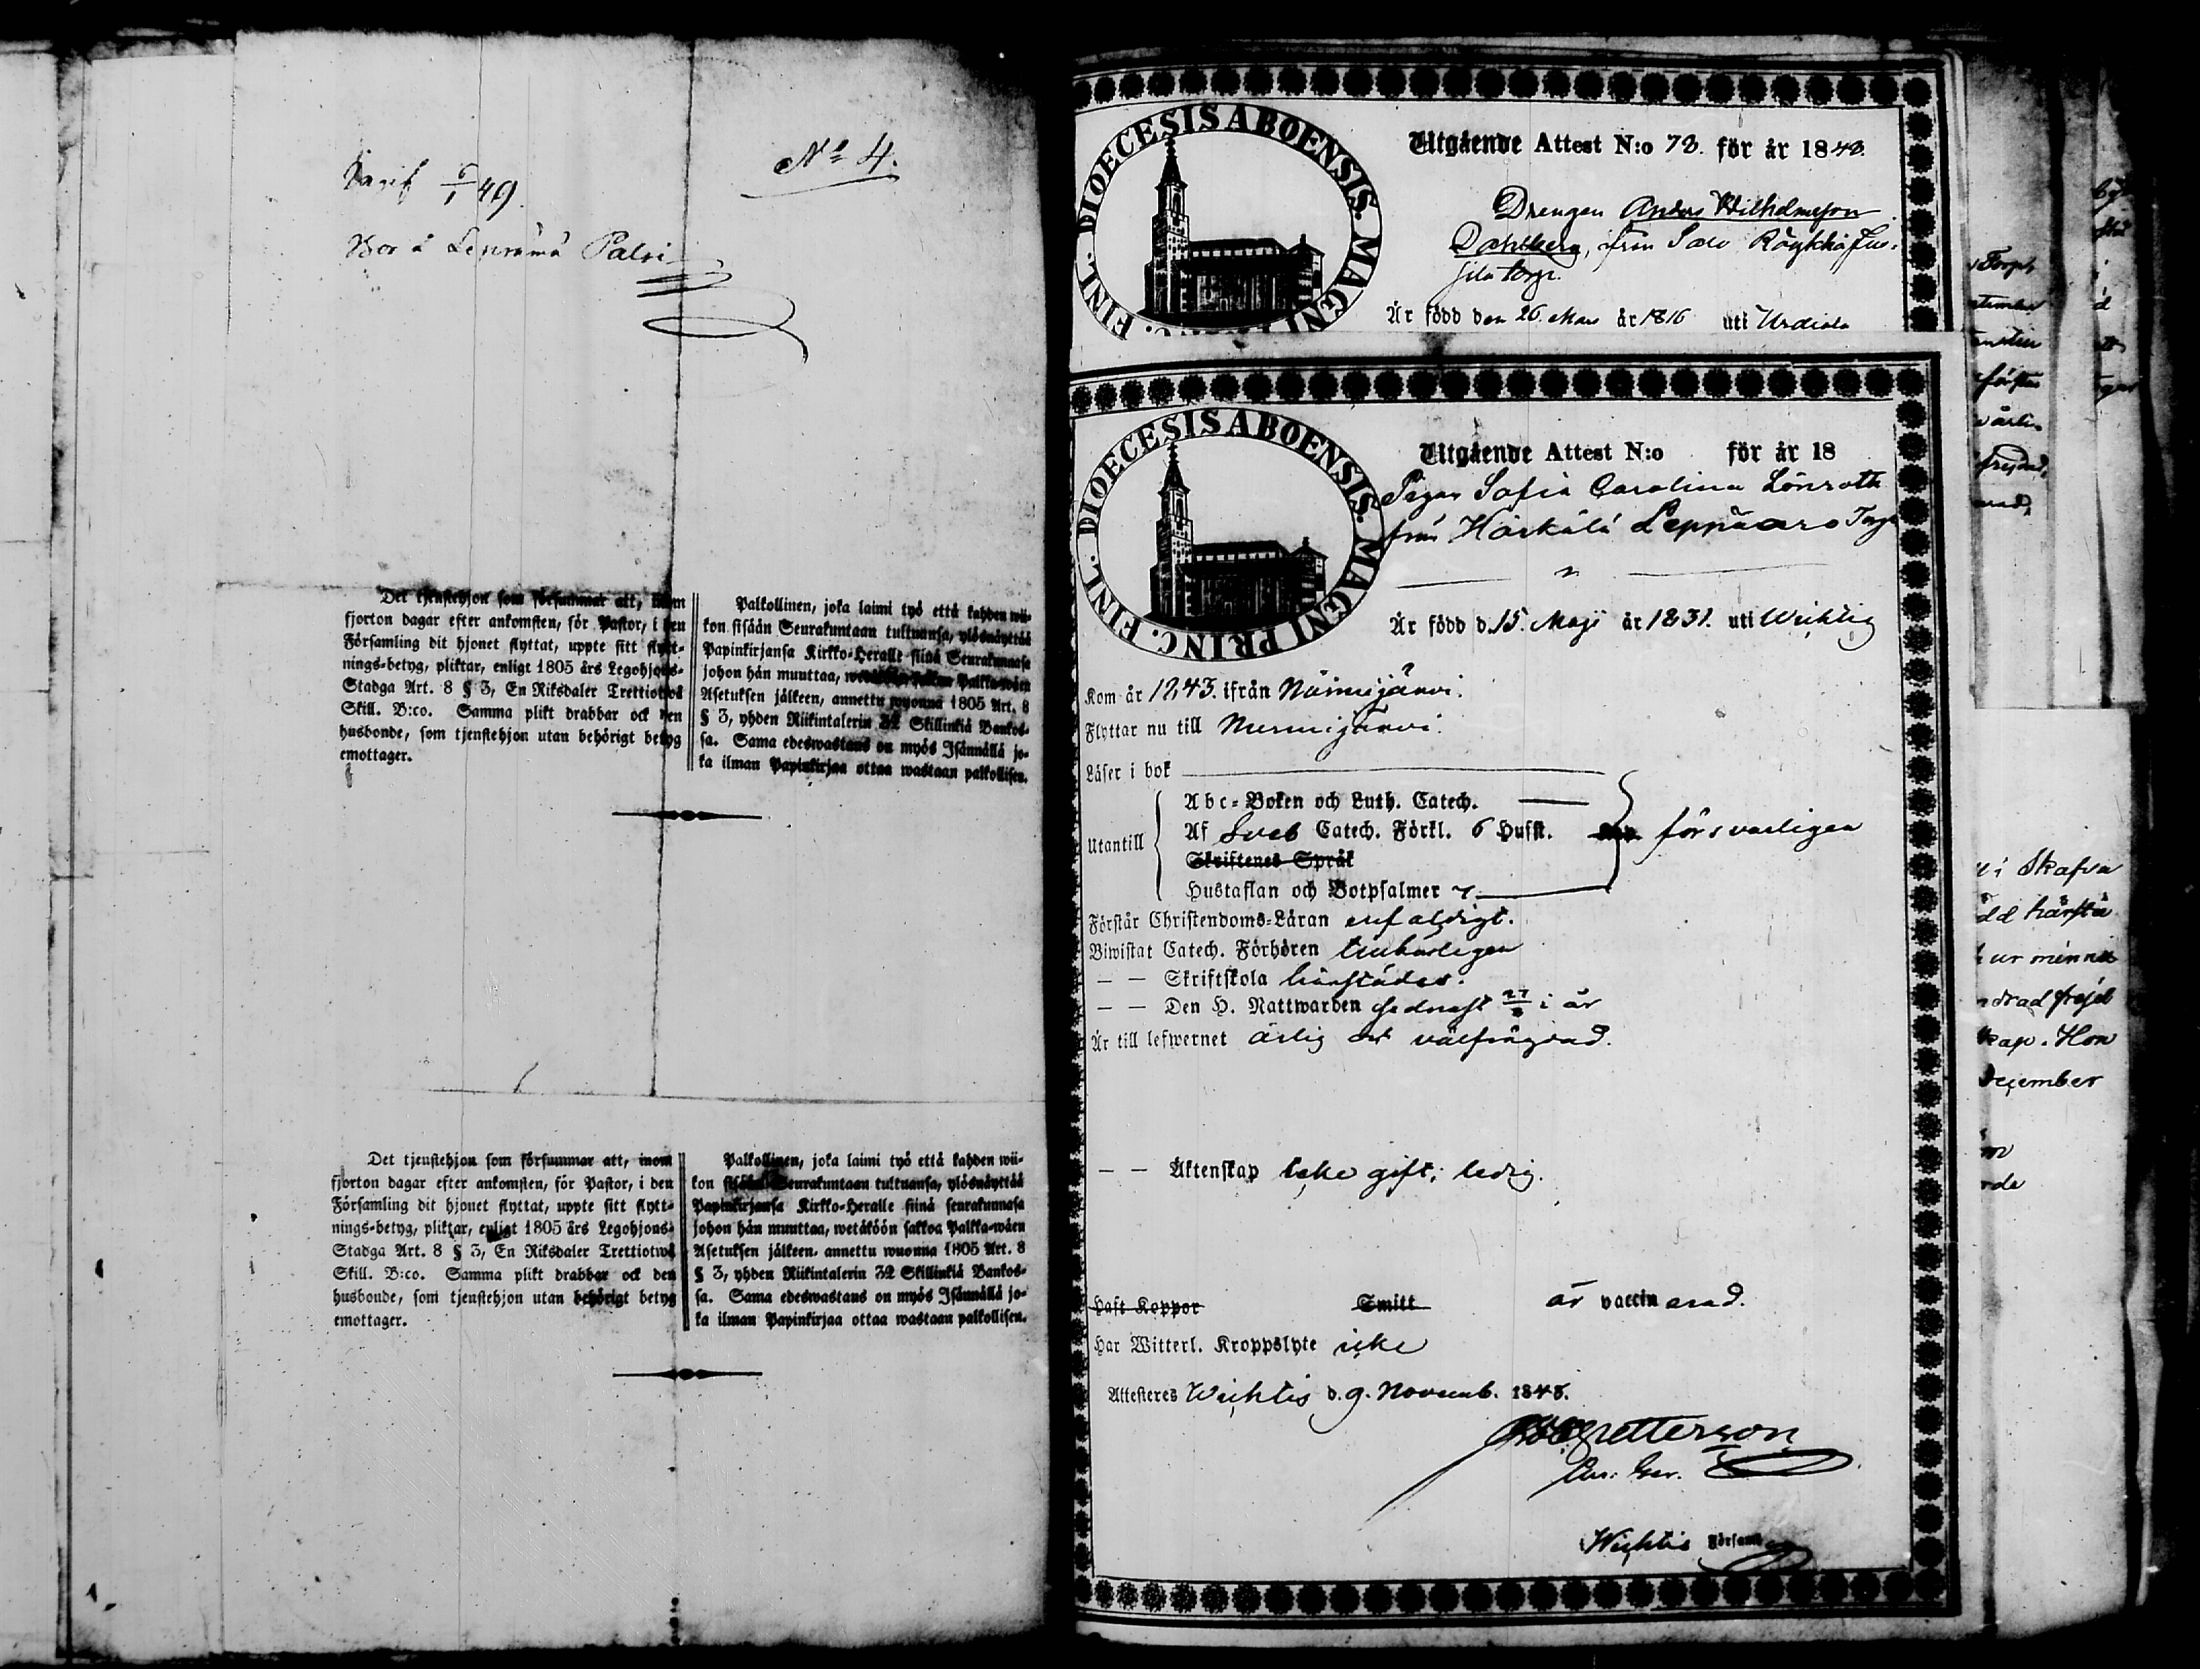 No 4.
6/1 49.
Bor å Lepsämä Palvi
Det tjenstehjon som försummar att, inom
fjorton dagar efter ankomsten, för Pastor, i den
Församling dit hjonet flyttat, uppte sitt flytt-
nings-betyg, pliktar, enligt 1805 års Legohjons-
Stadga Art. 8 § 3, En Riksdaler Trettiotwå
Skill. B:co. Samma plikt drabbar ock den
husbonde, som tjenstehjon utan behörigt betyg
emottager.
Palkollinen, joka laimi työ että kahden wii-
kon sisään Seurakuntaan tultuansa, ylösnäyttää
Papinkirjansa Kirkko-Heralle siinä Seurakunnasa
johon hän muuttaa, wetäköön sakkoa Palkka-wäen
Asetuksen jälkeen, annettu wuonna 1805 Art. 8
§ 3, yhden Riikintalerin 32 Skillinkiä Bankos-
sa. Sama edeswastaus on myös Isännällä jo-
ka ilman Papinkirjaa ottaa wastaan palkollisen.
Det tjenstehjon som försummar att, inom
fjorton dagar efter ankomsten, för Pastor, i den
Församling dit hjonet flyttat, uppte sitt flytt-
nings-betyg, pliktar, enligt 1805 års Legohjons-
Stadga Art. 8 § 3, En Riksdaler Trettiotwå
Skill. B:co. Samma plikt drabbar ock den
husbonde, som tjenstehjon utan behörigt betyg
emottager.
Palkollinen, joka laimi työ että kahden wii-
kon sisään Seurakuntaan tultuansa, ylösnäyttää
Papinkirjansa Kirkko-Heralle siinä seurakunnasa
johon hän muuttaa, wetäköön sakkoa Palkka-wäen
Asetuksen jälkeen, annettu wuonna 1805 Art. 8
§ 3, yhden Riikintalerin 32 Skillinkiä Bankos-
sa. Sama edeswastaus on myös Isännällä jo-
ka ilman Papinkirjaa ottaa wastaan palkollisen.
DIOECESIS ABOENSIS. MAGNI FINL.
Utgående Attest N:o 78. för år 1848.
Drengen Anders Wilhelmsson
Dahlberg, från Salo
torp.
Är född den 26. Mars år 1816 uti Urdiala
DIOECESIS ABOENSIS. MAGNI PRINC. FINL.
Utgående Attest N:o för år 18
Pigan Sofia Carolina Lönroth
från Härkälä Leppäaro Torp
Är född d. 15. Maji år 1831. uti Wichtis
Kom år 1843. ifrån Nurmijärvi.
Flyttar nu till Nurmijärvi.
Läser i bok
Utantill
Abc-Boken och Luth. Catech.
Af Sveb Catech. Förkl. 6 Hufst. försvarligen
Skriftenes Språk
Hustaflan och Botpsalmer
Förstår Christendoms-Läran enfaldigt.
Biwistat Catech. Förhören
— — Skriftskola härstädes.
— — Den H. Nattwarden sednast i år
Är till lefwernet ärlig och välfrägdad.
— — Äktenskap icke gift; ledig.
Haft Koppor Smitt är vaccinerad.
Har Witterl. Kroppslyte icke
Attesteres Wichtis d. 9. Novemb. 1848.
Wichtis Församl
Skafva
härstä
frejd
Hon
December